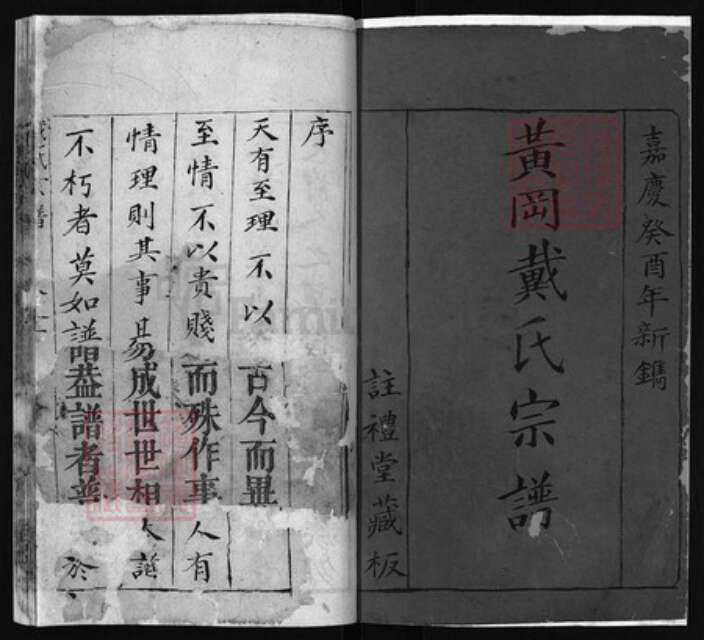 嘉慶癸酉年新鐫
黃岡戴氏宗譜
註禮堂藏板
序
天有至理不以古今而異
至情不以貴賤而殊作事人有
情理則其事易成世世相
不朽者莫如譜葢譜者 於